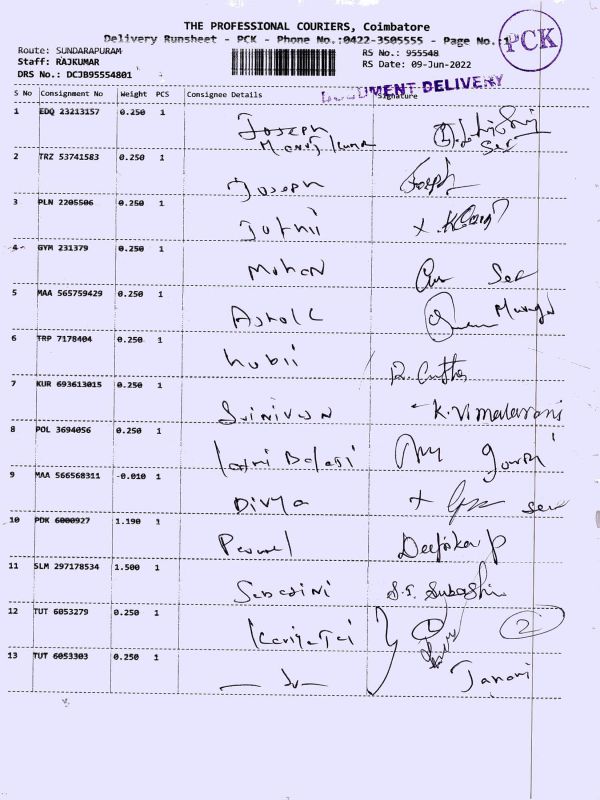 THE PROFESSIONAL COURIERS, Coimbatore
Delivery Runsheet - PCK - Phone No.:0422-3505555 - Page No.:1
PCK
Route: SUNDARAPURAM
RS No.: 955548
Staff: RAJKUMAR
RS Date: 09-Jun-2022
DRS No.: DCJB95554801
DOCUMENT DELIVERY
S No Consignment No Weight PCS Consignee Details Signature
1 EDQ 23213157 0.250 1 Joseph
2 TRZ 53741583 0.250 1 Joseph Joseph
3 PLN 2205506 0.250 1
4 GYM 231379 0.250 1 Mohan
5 MAA 565759429 0.250 1 Ashok
6 TRP 7178404 0.250 1
7 KUR 693613015 0.250 1 Srinivasan K. Vimalarani
8 POL 3694056 0.250 1 Laxmi Balaji Gowri
9 MAA 566568311 -0.010 1 Divya
10 PDK 6000927 1.190 1 Perumal Deepika P
11 SLM 297178534 1.500 1 S.S. Subashini
12 TUT 6053279 0.250 1 2
13 TUT 6053303 0.250 1 Janani